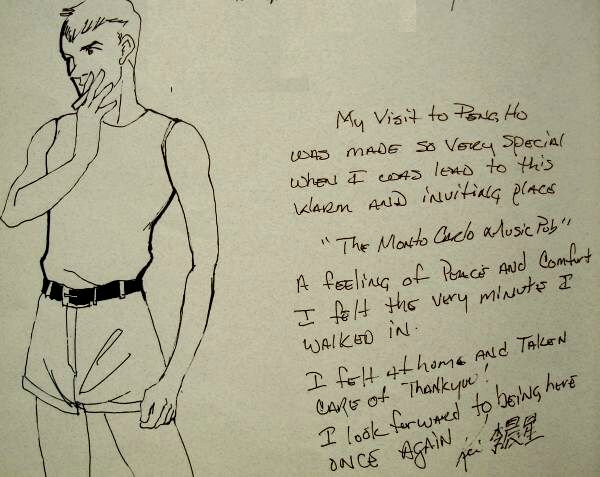 My Visit to Peng Ho
was made so very special
when I was lead to this
warm and inviting place
"The Monto Carlo Music Pub"
A feeling of Peace and Comfort
I felt the very minute I
walked in.
I felt at home and taken
care of Thankyou!
I look forward to being here
once again
李晨星